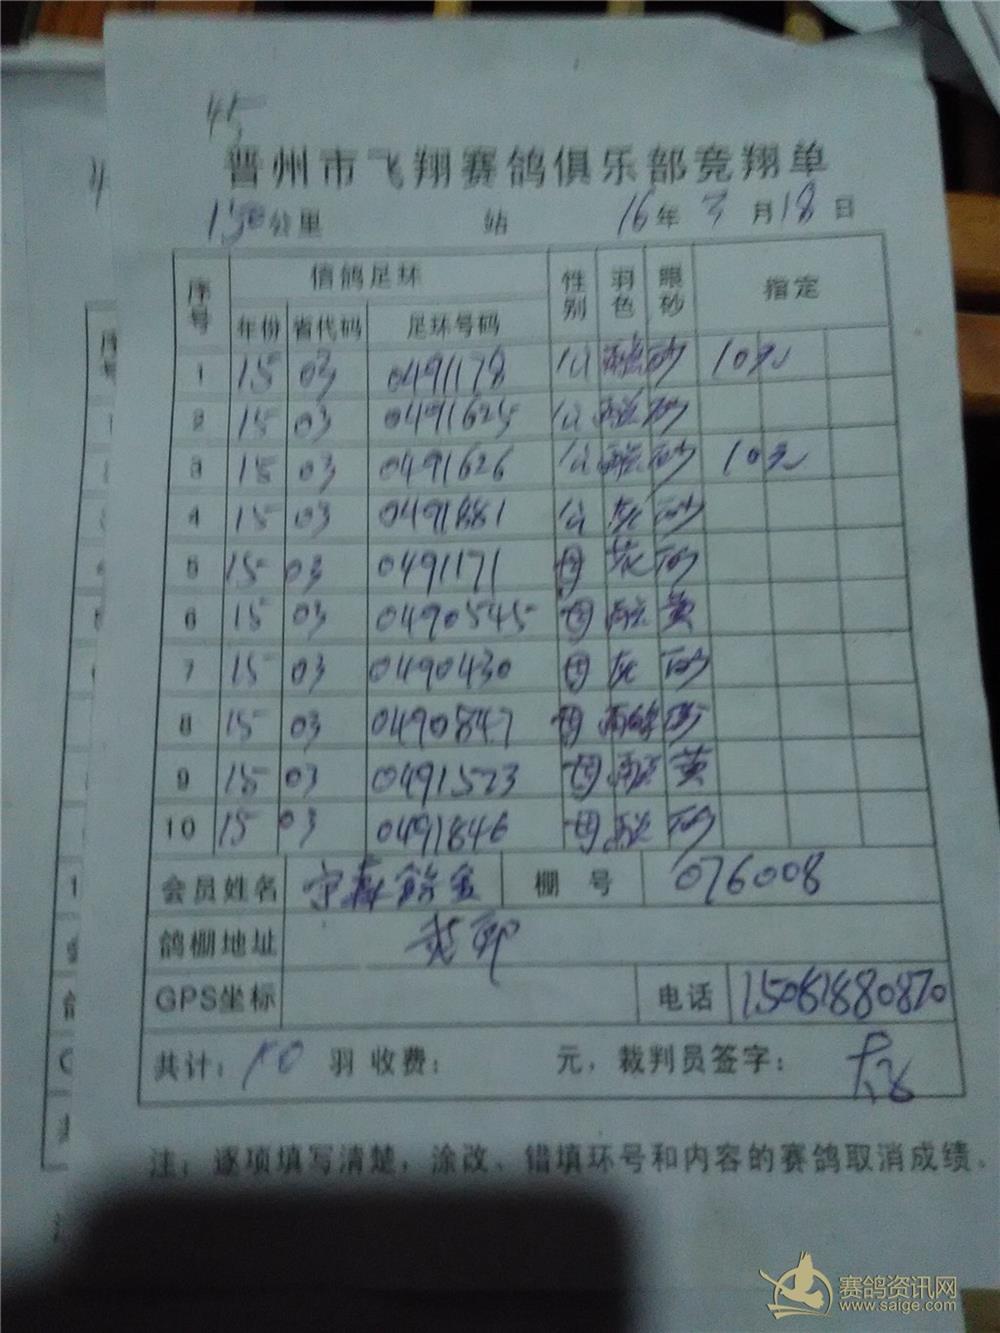 45
晋州市飞翔赛鸽俱乐部竞翔单
150公里 站 16年3月18日
序号 信鸽足环 性别 羽色 眼砂 指定
年份 省代码 足环号码
1 15 03 0491178 公 砂 10元
2 15 03 0491625 公 砂
3 15 03 0491626 公 砂 10元
4 15 03 0491881 公 灰 砂
5 15 03 0491171 母 灰 砂
6 15 03 0490545 母 黄
7 15 03 0490430 母 灰 砂
8 15 03 0490847 母 砂
9 15 03 0491523 母 黄
10 15 03 0491846 母 砂
会员姓名 棚号 076008
鸽棚地址
GPS坐标 电话 15081880870
共计：10 羽 收费： 元，裁判员签字：
注：逐项填写清楚，涂改、错填环号和内容的赛鸽取消成绩。
赛鸽资讯网
www.saige.com